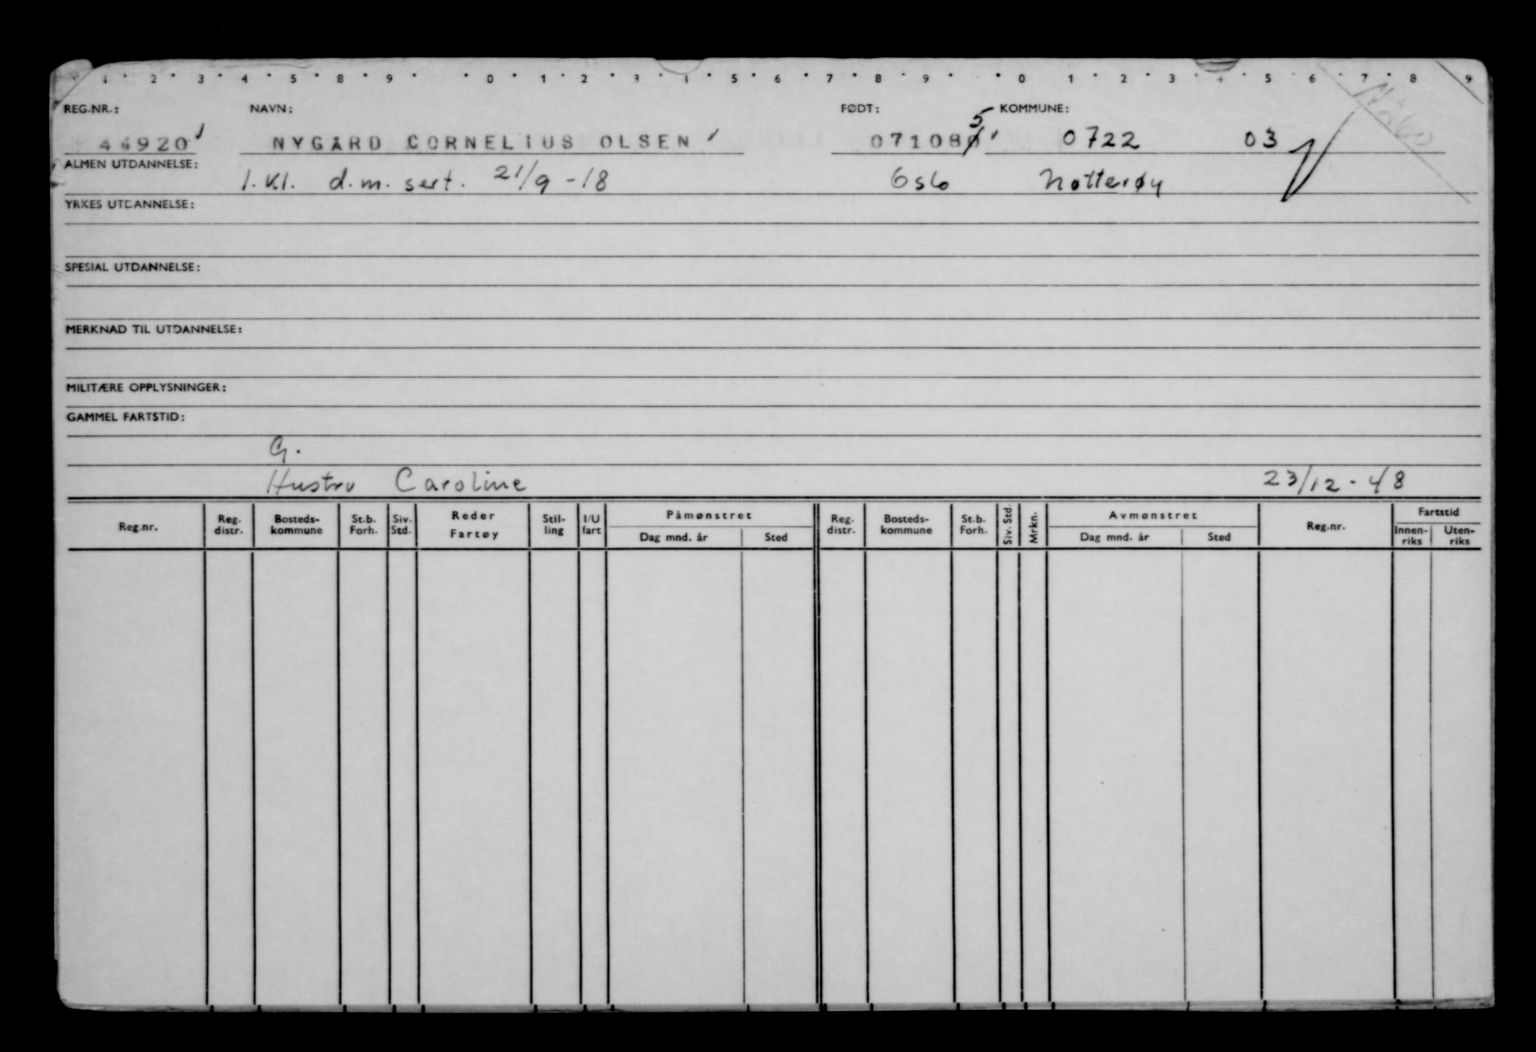 1 2 3 4 5 8 9 0 1 2 3 4 5 6 7 8 9 0 1 2 3 4 5 6 7 8 9
REG.NR.: NAVN: FØDT: KOMMUNE:
44920 NYGÅRD CORNELIUS OLSEN 071085 0722 03
ALMEN UTDANNELSE: 1. kl. d.m. sert. 21/9 -18 Oslo Nøtterøy
YRKES UTDANNELSE:
SPESIAL UTDANNELSE:
MERKNAD TIL UTDANNELSE:
MILITÆRE OPPLYSNINGER:
GAMMEL FARTSTID:
G.
Hustru Caroline 23/12 - 48
Reg.nr. Reg. distr. Bosteds-kommune St.b. Forh. Siv. Std. Reder Fartøy Stil-ling I/U fart Påmønstret Dag mnd. år Sted Reg. distr. Bosteds-kommune St.b. Forh. Siv. Std. Mrkn. Avmønstret Dag mnd. år Sted Reg.nr. Fartstid Innen-riks Uten-riks